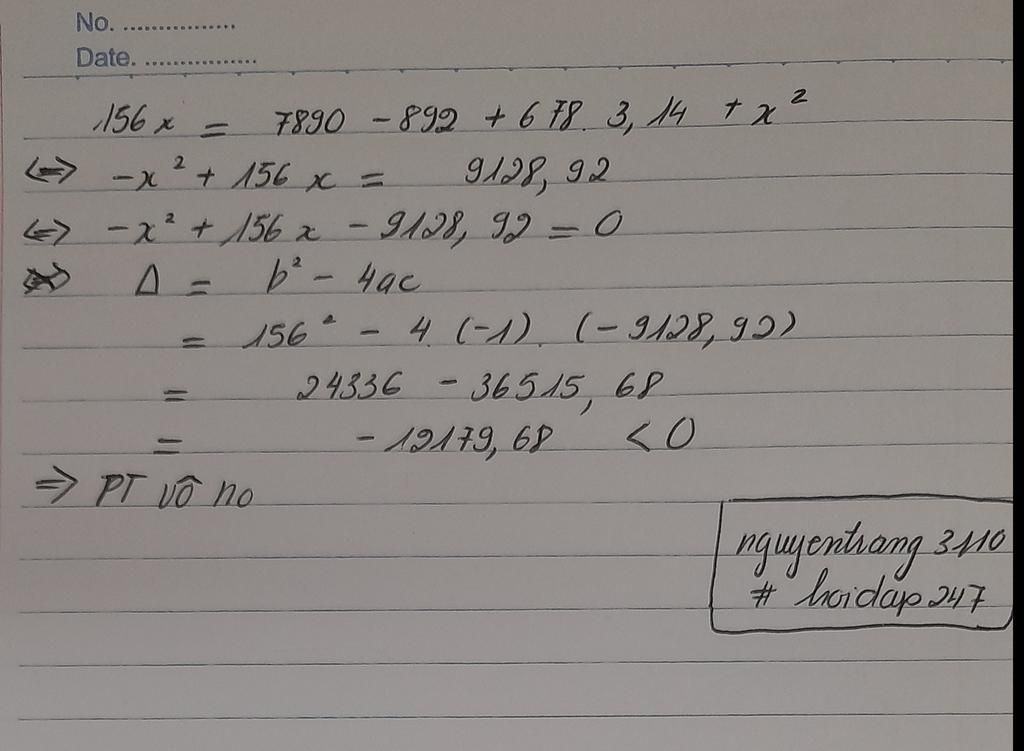 No. ................
Date. ................
156x = 7890 - 892 + 678. 3,14 + x²
<=> -x² + 156x = 9128,92
<=> -x² + 156x - 9128,92 = 0
Δ = b² - 4ac
= 156² - 4. (-1). (-9128,92)
= 24336 - 36515,68
= -12179,68 < 0
=> PT vô no
nguyentrang 3110
# hoidap 247